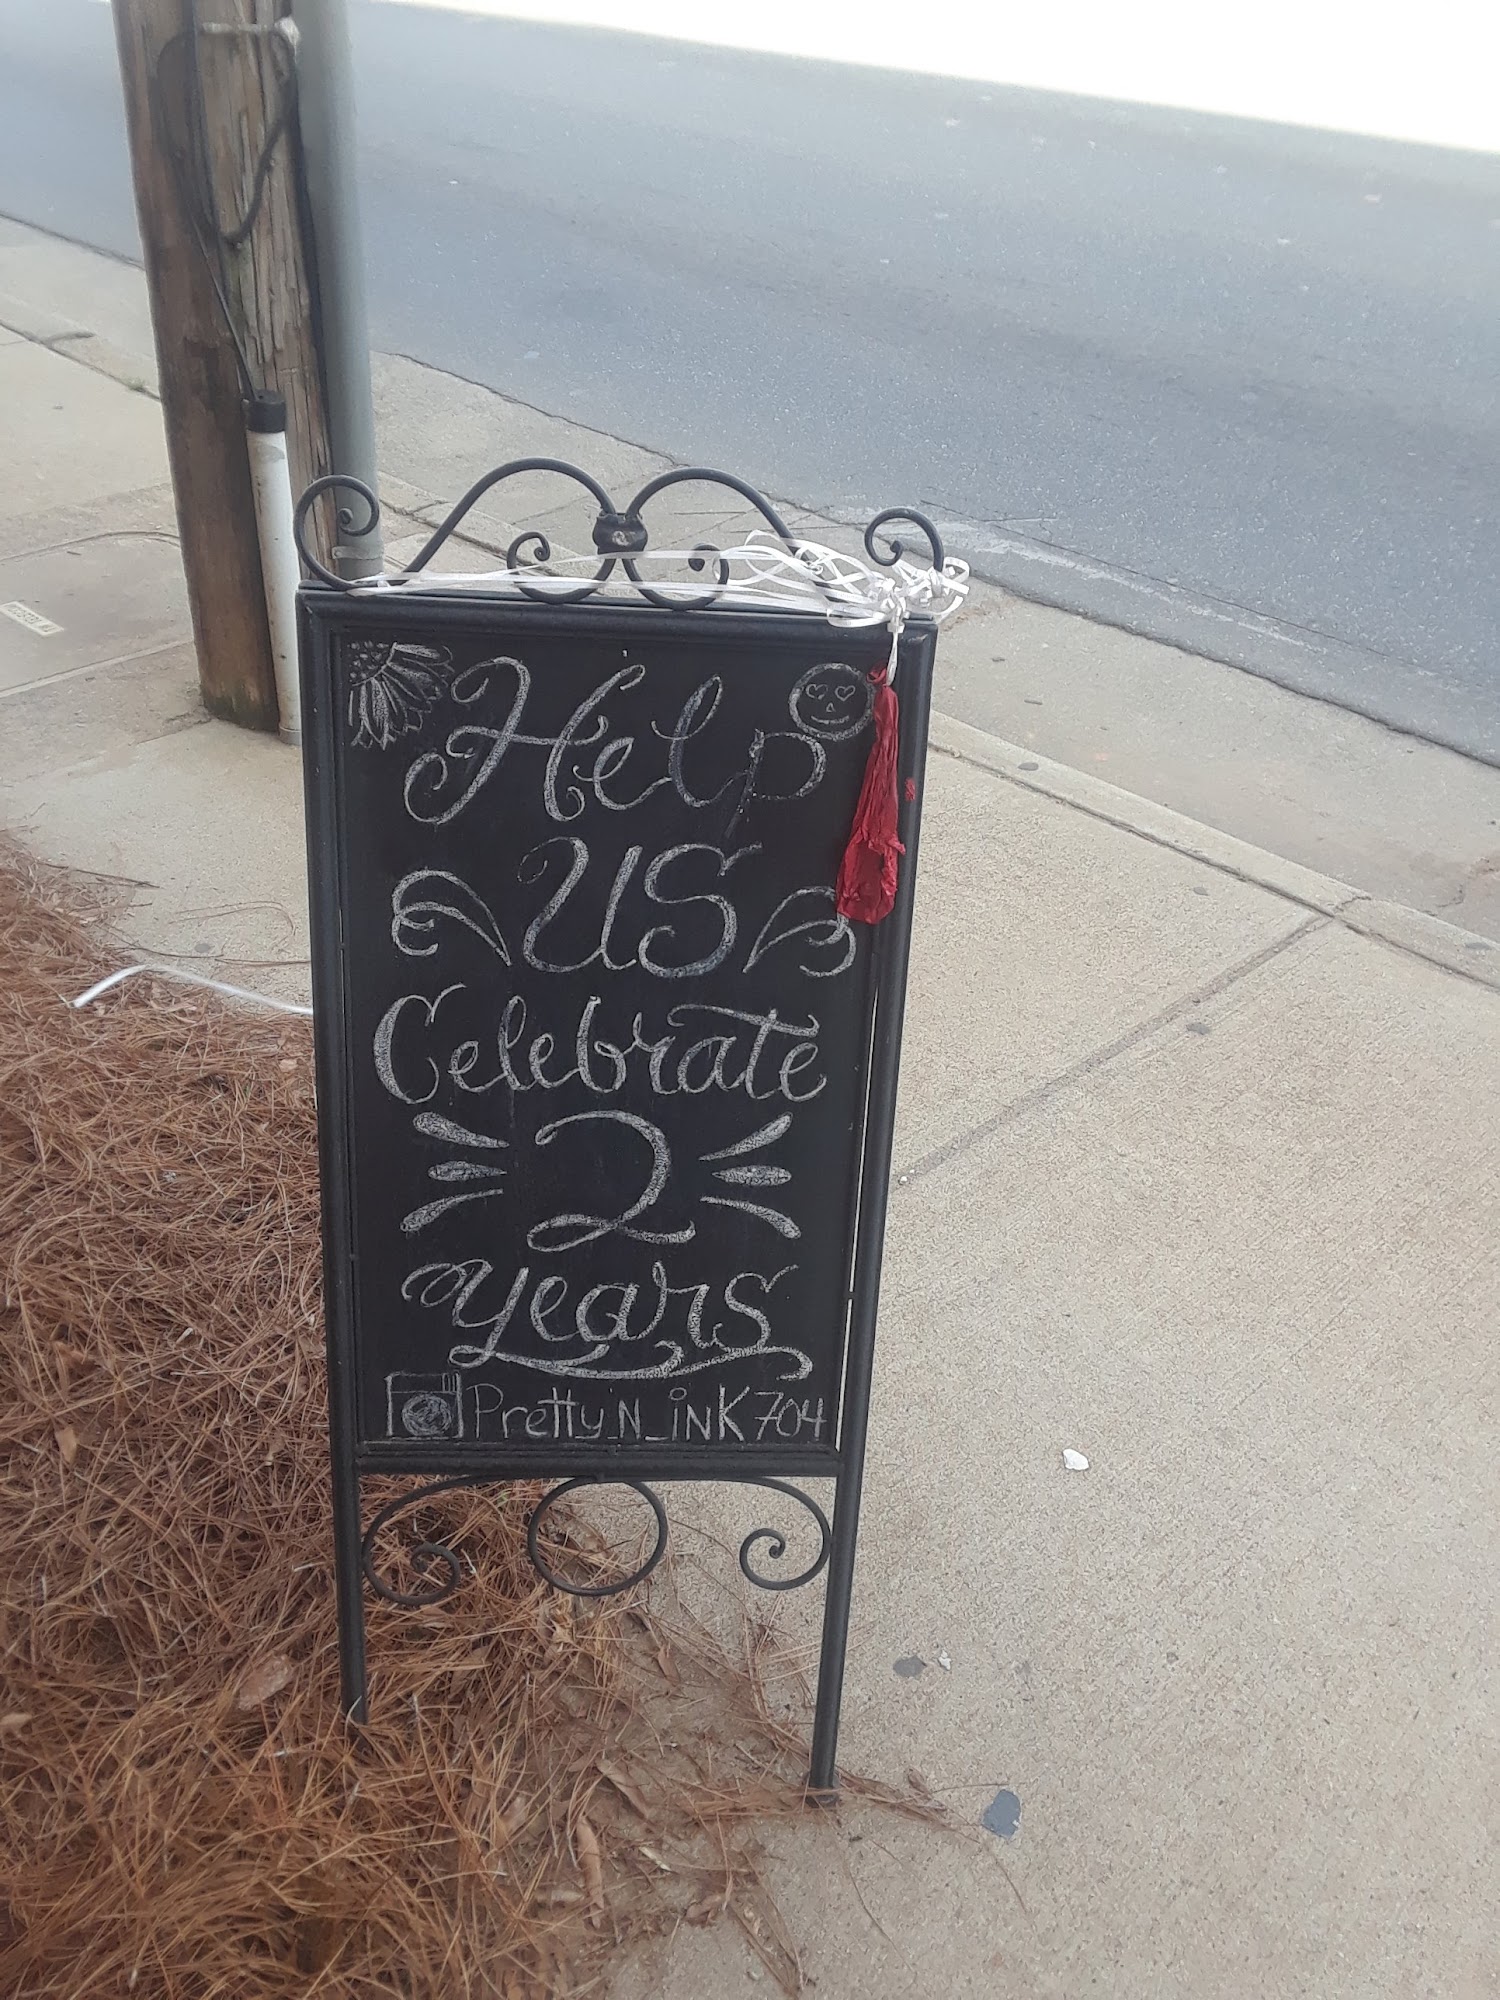 Help
US
Celebrate
2
years
Pretty_N_iNK704